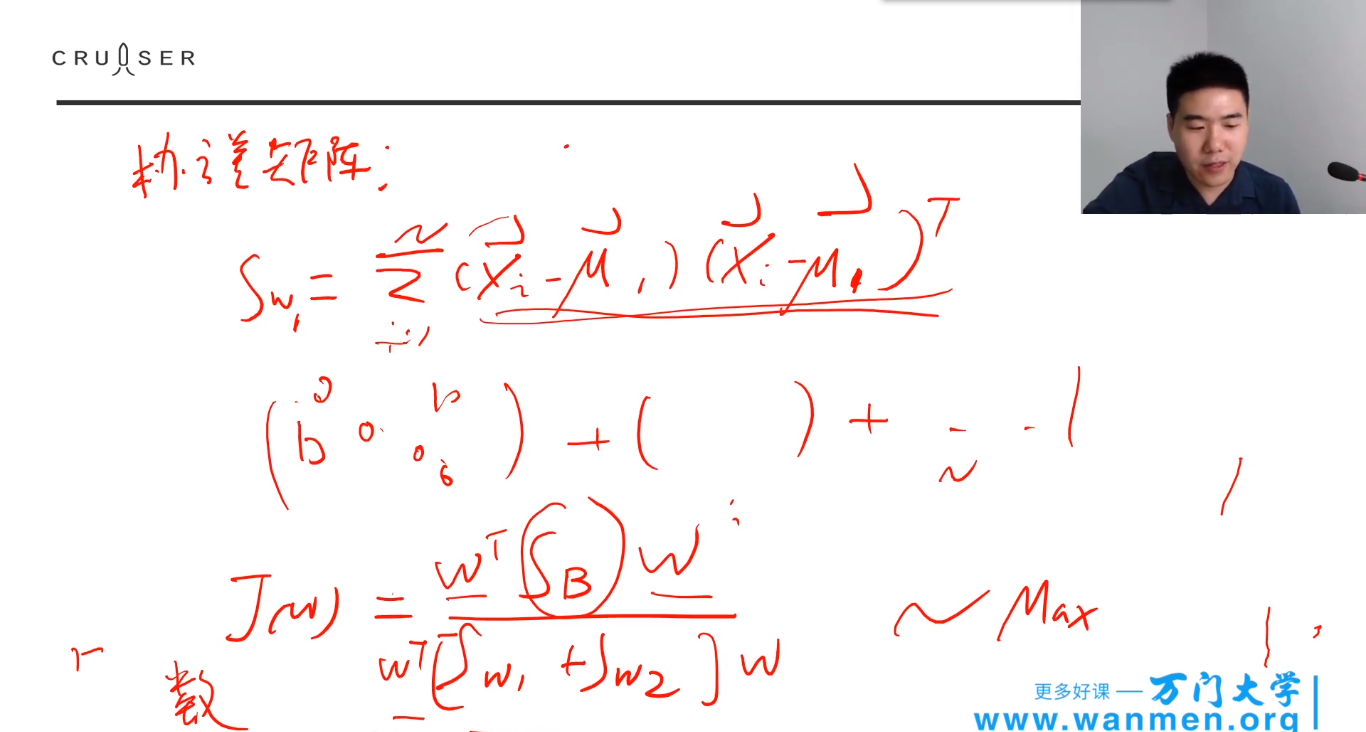 CRUISER
协方差矩阵:
S_{w_1} = \sum_{i=1}^{N} (\vec{x}_i - \vec{\mu}_1)(\vec{x}_i - \vec{\mu}_1)^T
( ) + ( ) +
J(w) = \frac{w^T S_B w}{w^T [S_{w_1} + S_{w_2}] w} ~ Max
数
更多好课 — 万门大学
www.wanmen.org